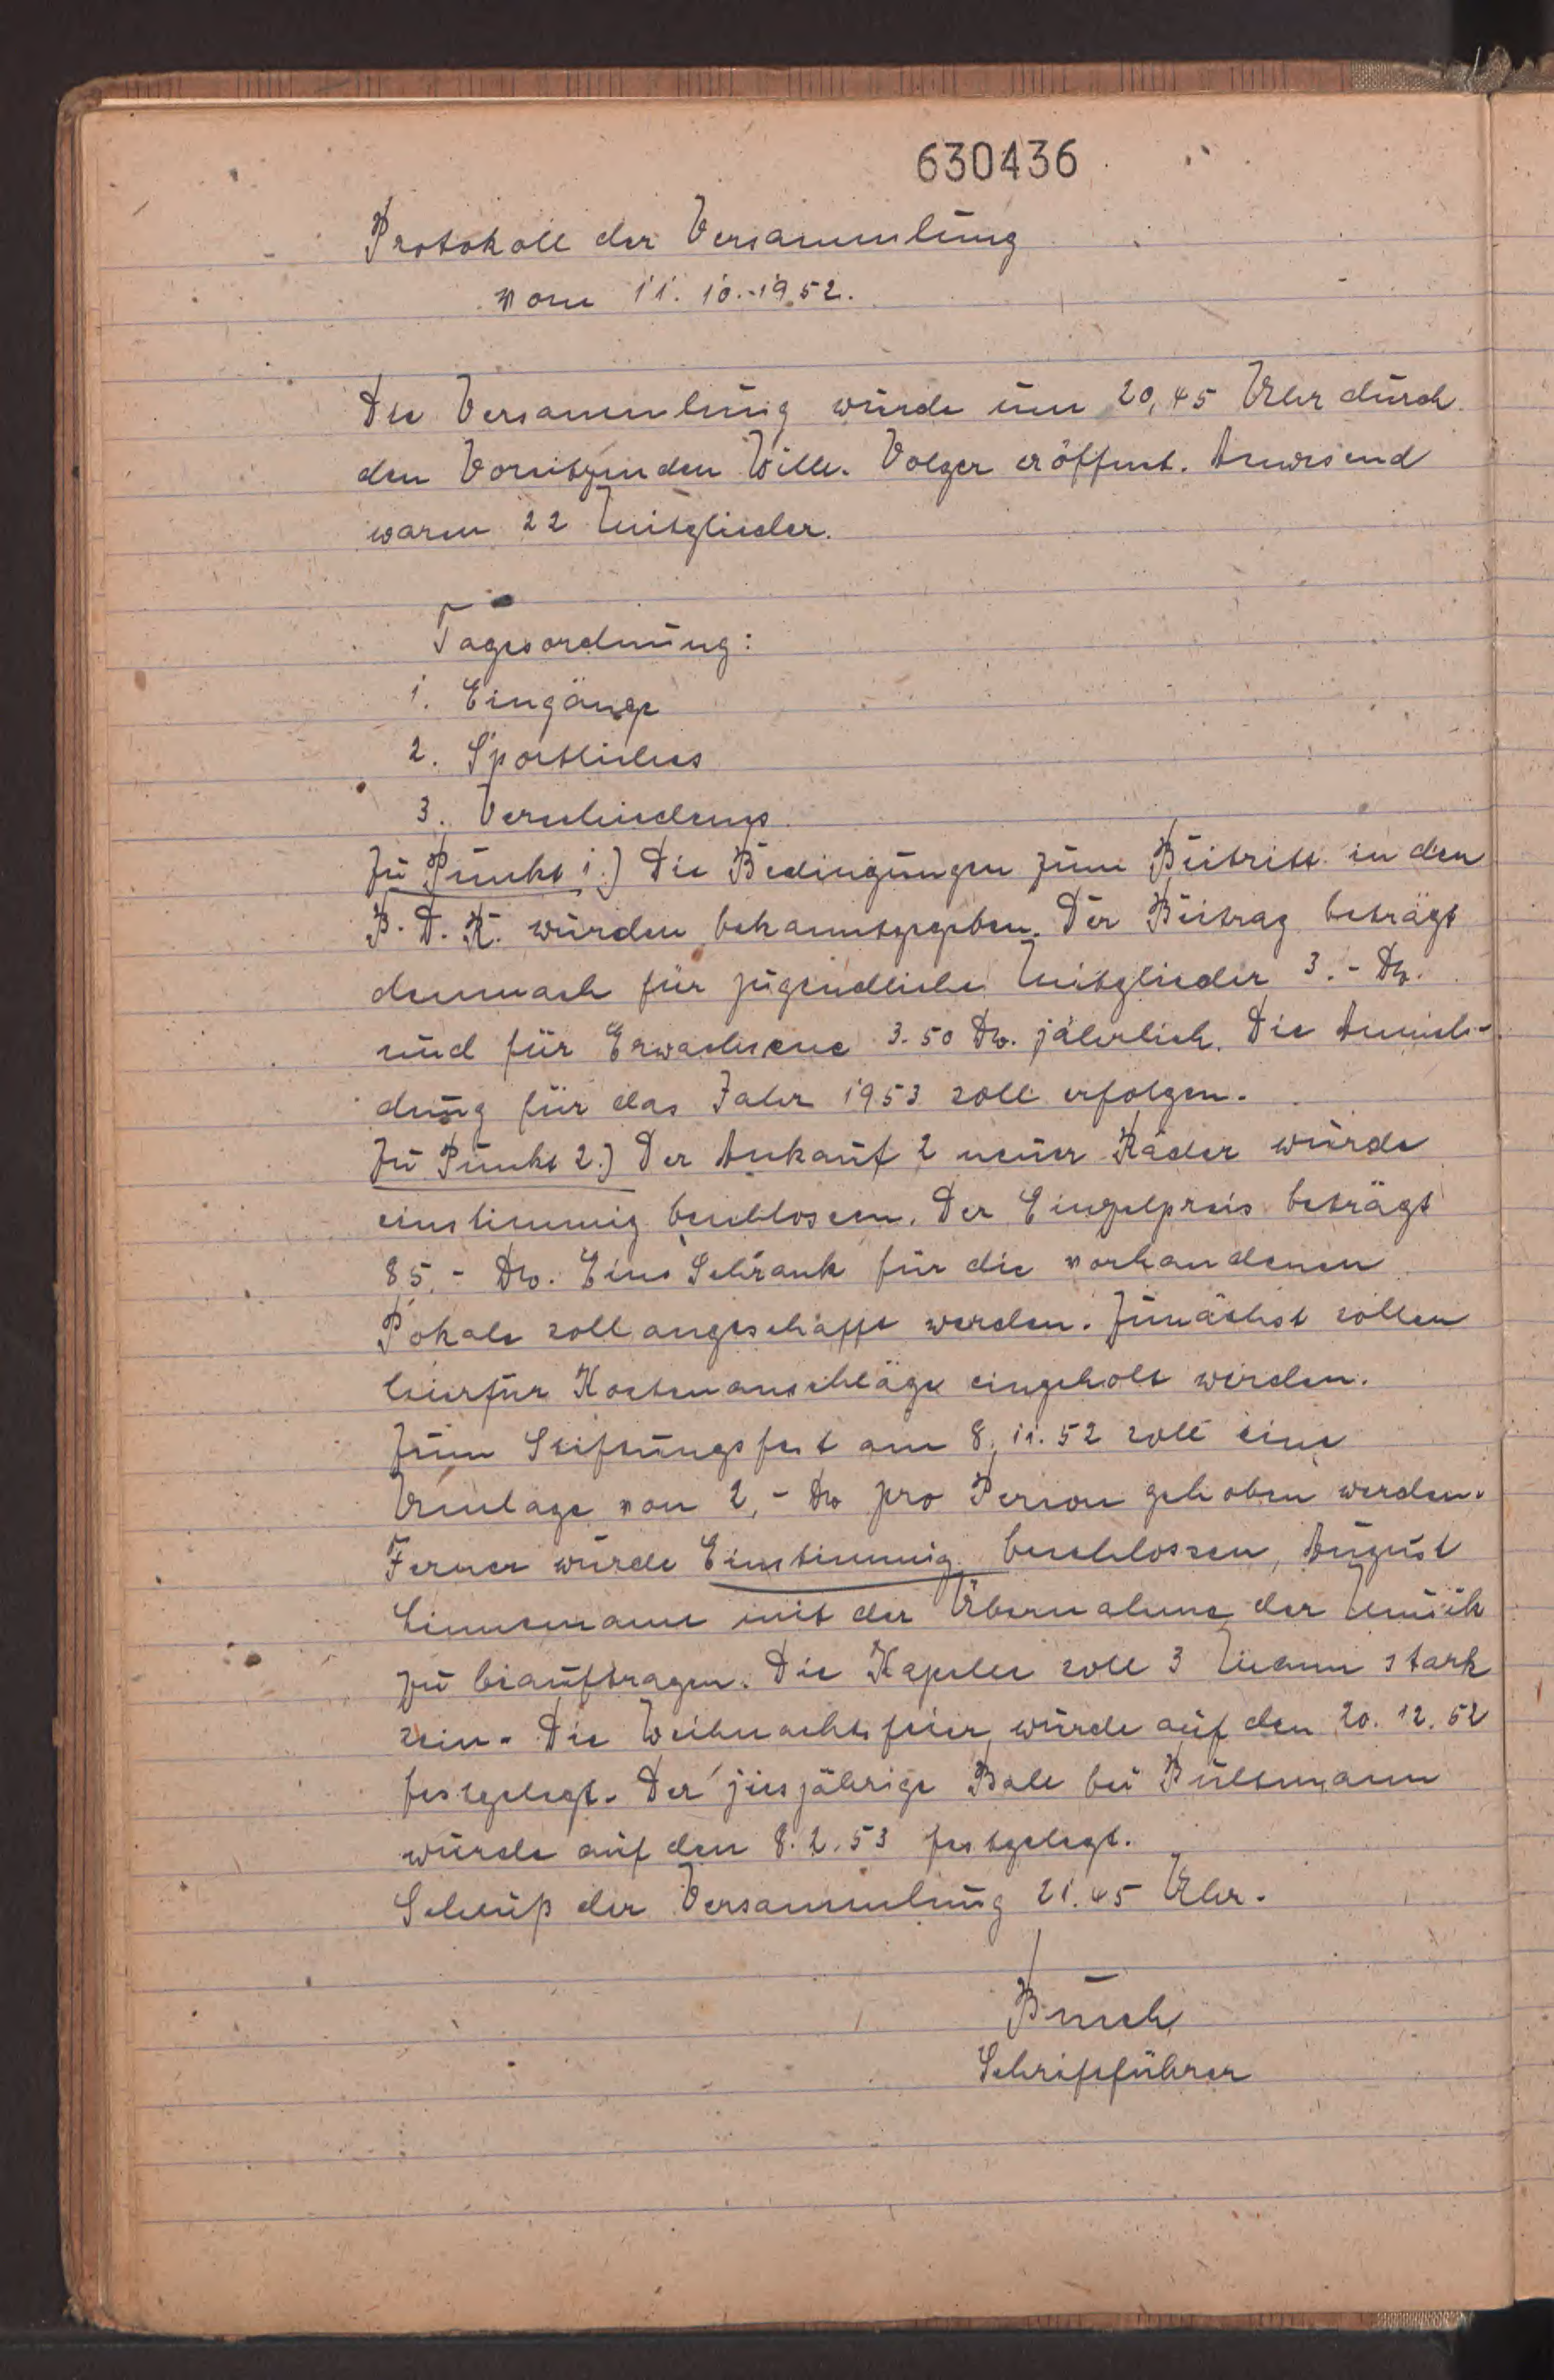 630436
Protokoll der Versammlung
vom 11.10.1952.
Die Versammlung wurde um 20,45 Uhr durch
den Vorsitzenden Wilh. Volger eröffnet. Anwesend
waren 22 Mitglieder.
Tagesordnung:
1. Eingänge
2. Sportliches
3. Verschiedenes
Zu Punkt 1.) Die Bedingungen zum Beitritt in den
B.D.R. wurden bekanntgegeben. Der Beitrag beträgt
demnach für jugendliche Mitglieder 3.- DM.
und für Erwachsene 3.50 DM. jährlich. Die Anmel-
dung für das Jahr 1953 soll erfolgen.
Zu Punkt 2.) Der Ankauf 2 neuer Räder wurde
einstimmig beschlossen. Der Einzelpreis beträgt
85,- DM. Eine Schrank für die vorhandenen
Pokale soll angeschafft werden. Zunächst sollen
hierfür Kostenanschläge eingeholt werden.
Zum Stiftungsfest am 8.11.52 soll eine
Umlage von 2,- DM pro Person gehoben werden.
Ferner wurde Einstimmig beschlossen, August
Linnemann mit der Übernahme der Musik
zu beauftragen. Die Kapelle soll 3 Mann stark
sein. Die Weihnachtsfeier wurde auf den 20.12.52
festgelegt. Der jesjährige Ball bei Bültmann
wurde auf den 8.2.53 festgelegt.
Schluß der Versammlung 21.45 Uhr.
Busch
Schriftführer